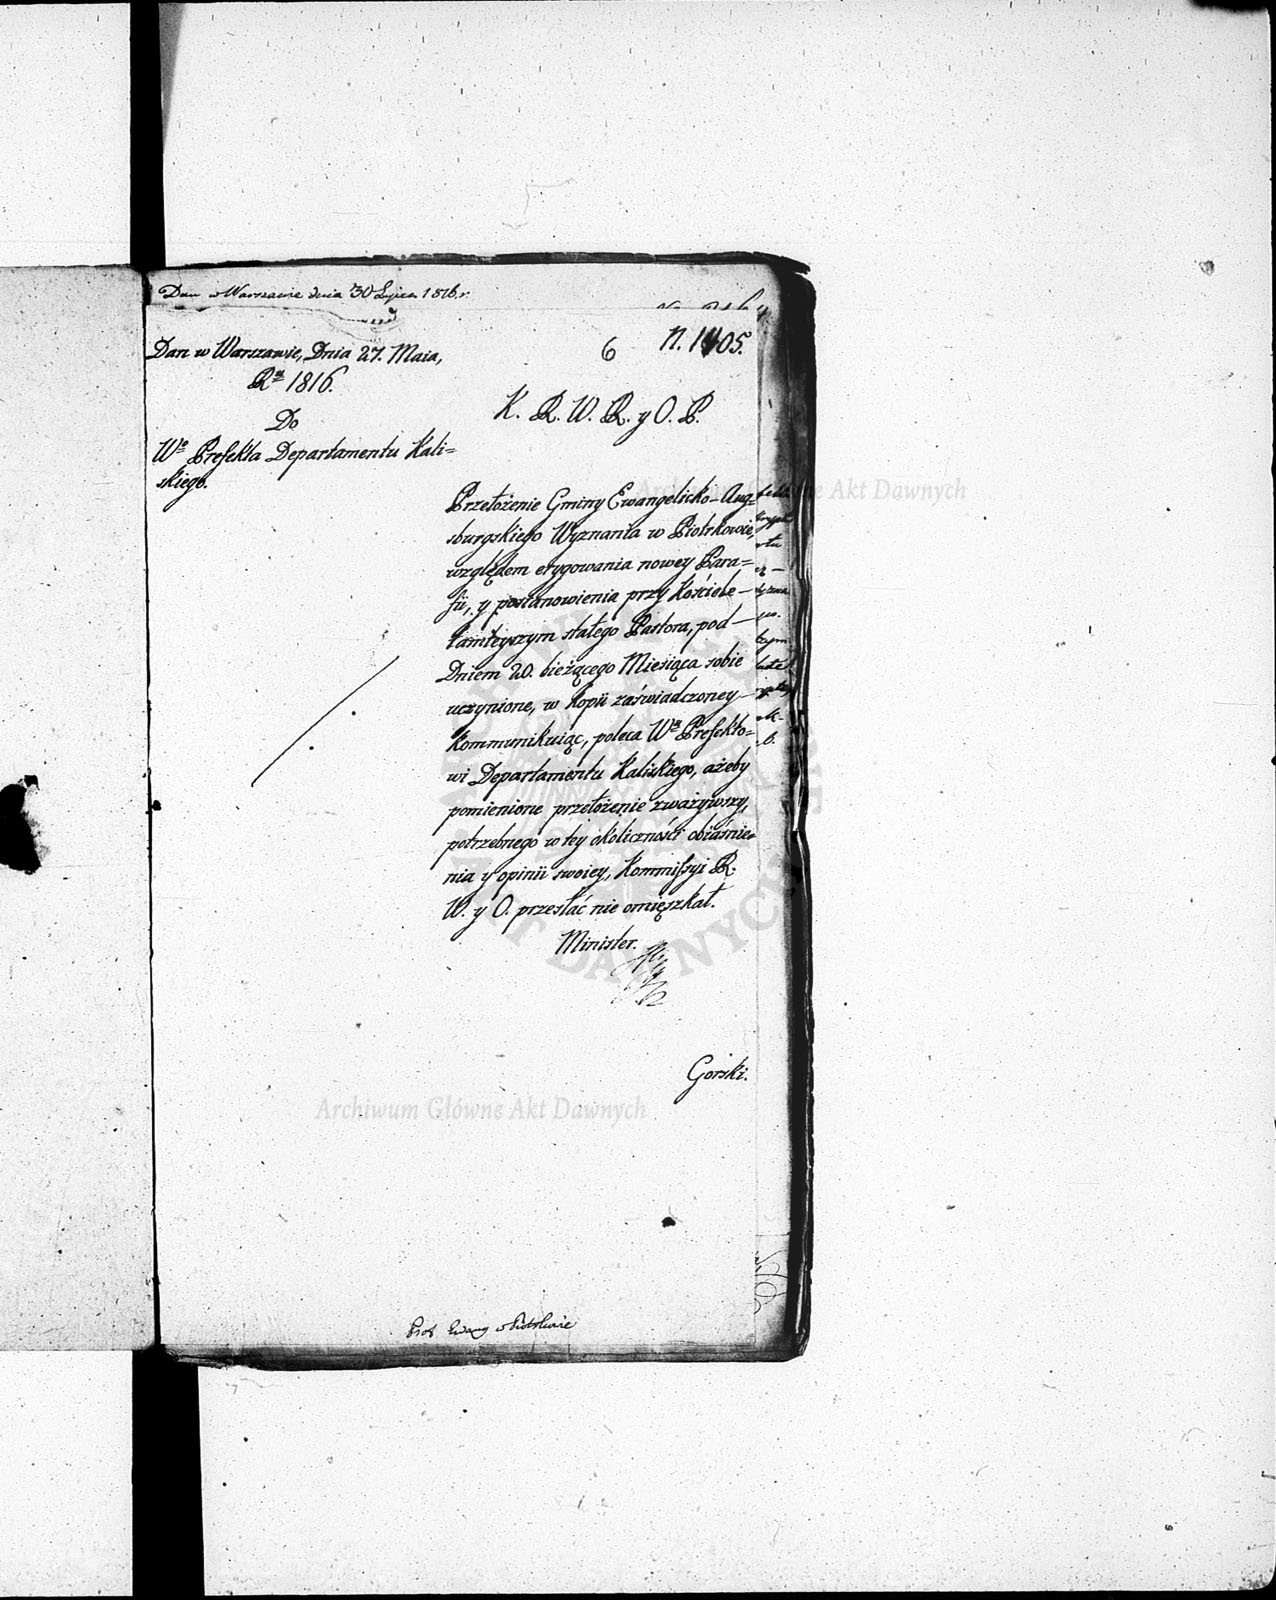 Dan w Warszawie dnia 30 Lipca 1816 r.
Dan w Warszawie, Dnia 27. Maia,
Ra 1816.
Do
Wo Prefekta Departamentu Kali=
skiego.
6 N. 1405.
K. R. W. R. y O. P.
Przełożenie Gminy Ewangelicko-Aug=
sburgskiego Wyznania w Piotrkowie,
względem erygowania nowey Para=
fii, y postanowienia przy Kościele
tamteyszym stałego Pastora, pod
Dniem 20. bieżącego Miesiąca sobie
uczynione, w kopii zaświadczoney
kommunikuiąc, poleca Wu Prefekto=
wi Departamentu Kaliskiego, ażeby
pomienione przełożenie zważywszy,
potrzebnego w tey okoliczności obiaśnie=
nia y opinii swoiey, Kommissyi R.
W. y O. przesłać nie omięszkał.
Minister.
Gorski.
Ewang w Piotrkowie
Archiwum Główne Akt Dawnych
Archiwum Główne Akt Dawnych